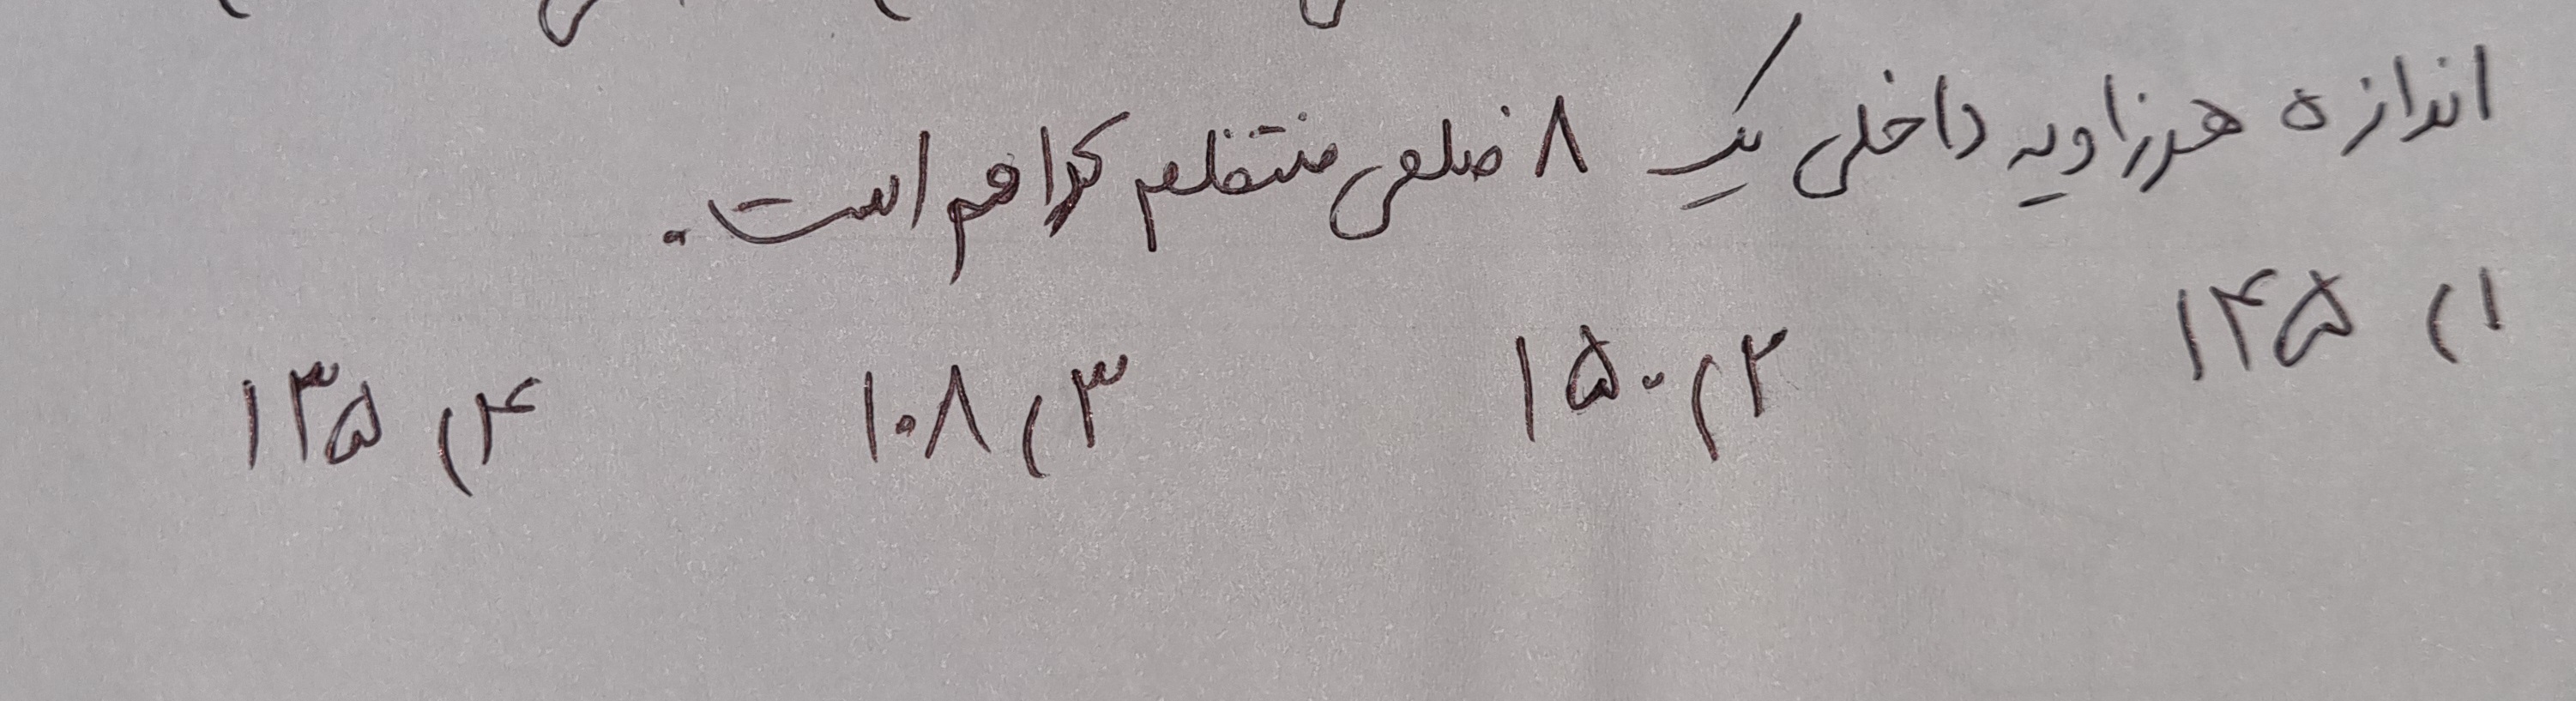 اندازه هر زاویه داخلی یک ۸ ضلعی منتظم کدام است.
۱) ۱۴۵ ۲) ۱۵۰ ۳) ۱۰۸ ۴) ۱۳۵